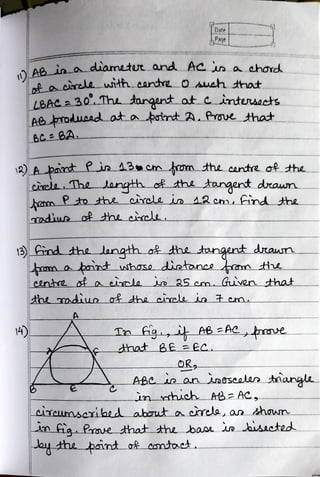 Date
Page
11) AB is a diameter and AC is a chord
of a circle with centre O such that
∠BAC = 30°. The tangent at C intersects
AB produced at a point D. Prove that
BC = BD.
12) A point P is 13 cm from the centre of the
circle. The length of the tangent drawn
from P to the circle is 12 cm. Find the
radius of the circle.
13) Find the length of the tangent drawn
from a point whose distance from the
centre of a circle is 25 cm. Given that
the radius of the circle is 7 cm.
14) A
In Fig., if AB = AC, prove
that BE = EC.
OR,
F
B E C
ABC is an isosceles triangle
in which AB = AC,
circumscribed about a circle, as shown
in fig. Prove that the base is bisected
by the point of contact.